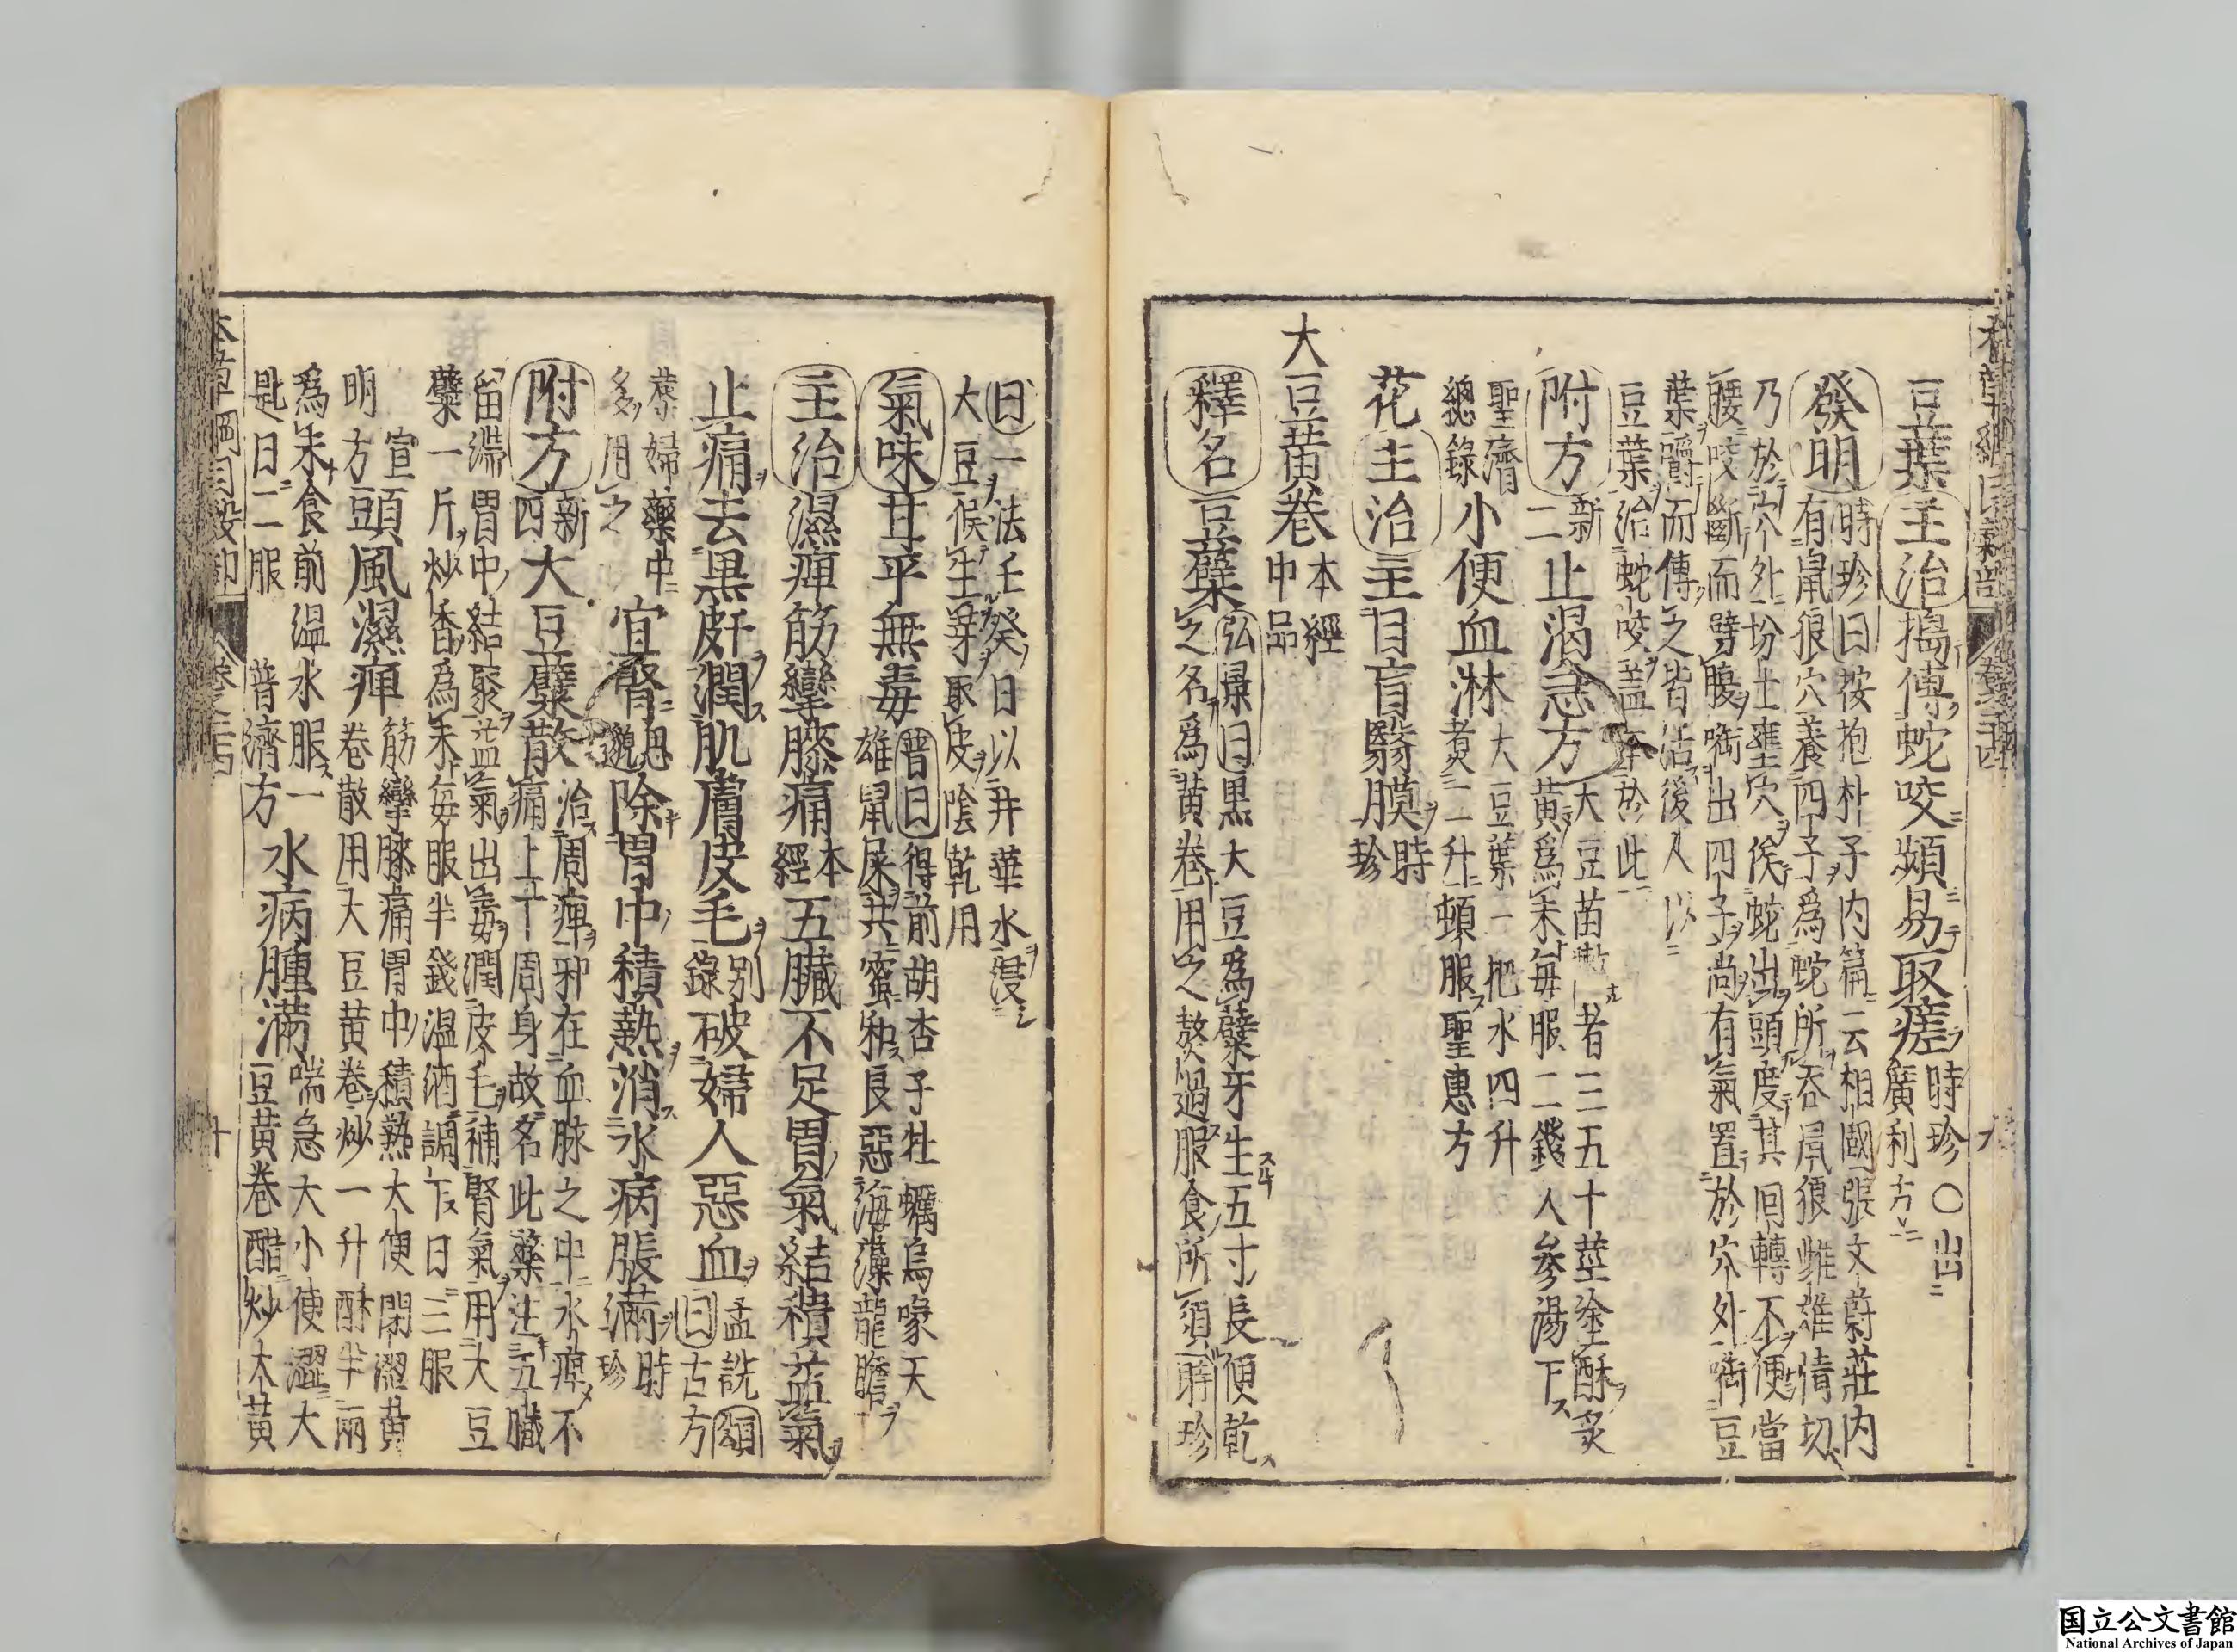 豆葉主治搗傅蛇咬頻易取瘥時珍〇出
廣利方
發明時珍曰按抱朴子內篇云相國張文蔚莊內
有鼠狼穴養四子爲蛇所吞鼠狼雌雄情切
乃於穴外坋土壅穴俟蛇出頭度其回轉不便當
腰咬斷而劈腹銜出四子尚有氣置於穴外銜豆
葉嚼而傅之皆活後人以
豆葉治蛇咬蓋本於此
附方新二止渴急方大豆苗嫩者三五十莖塗酥炙
黃爲末每服二錢人參湯下
聖濟總錄小便血淋大豆葉一把水四升
煮二升頓服聖惠方
花主治主目盲翳膜時珍
大豆黃卷本經中品
釋名豆蘗弘景曰黑大豆爲蘗牙生五寸長便乾
之名爲黃卷用之熬過服食所須時珍
曰一法壬癸日以井華水浸
大豆候生芽取皮陰乾用
氣味甘平無毒普曰得前胡杏子牡蠣烏喙天
雄鼠屎共蜜和良惡海藻龍膽
主治濕痺筋攣膝痛本經五臟不足胃氣結積益氣
止痛去黑皯潤肌膚皮毛別錄破婦人惡血孟詵頌
曰古方
蓐婦藥中
多用之宜腎思邈除胃中積熱消水病脹滿時珍
附方新四大豆蘗散治周痺邪在血脉之中水痺不
痛上下周身故名此藥注五臟
留滯胃中結聚益氣出毒潤皮毛補腎氣用大豆
蘗一斤炒香爲末每服半錢溫酒調下日三服
宣
明方頭風濕痺筋攣膝痛胃中積熱大便閉澀黃
卷散用大豆黃卷炒一升酥半兩
爲末食前溫水服一
匙日二服普濟方水病腫滿喘急大小便澀大
豆黃卷醋炒大黃